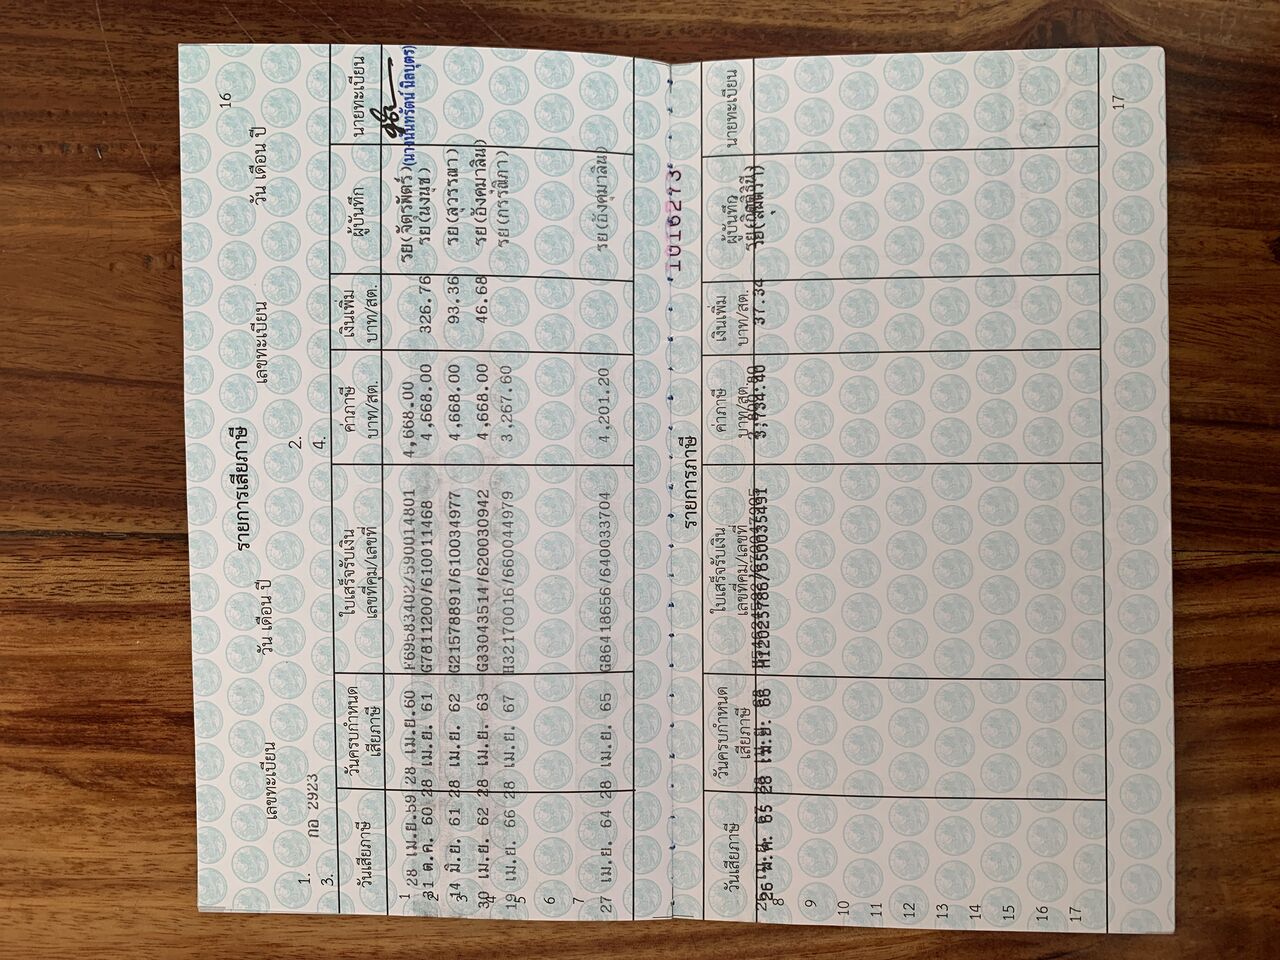 16
รายการเสียภาษี
เลขทะเบียน วัน เดือน ปี เลขทะเบียน วัน เดือน ปี
1. กอ 2923 2.
3. 4.
วันเสียภาษี วันครบกำหนดเสียภาษี ใบเสร็จรับเงิน เล่มที่คุม/เลขที่ ค่าภาษี บาท/สต. เงินเพิ่ม บาท/สต. ผู้บันทึก นายทะเบียน
1 28 เม.ย.59 28 เม.ย.60 F69583402/590014801 4,668.00 รย(จัตุรพัตร์)
(นางนันทรัตน์ นิลบุตร)
2 31 ต.ค. 60 28 เม.ย. 61 G7811200/610011468 4,668.00 326.76 รย(นงนุช)
3 14 มิ.ย. 61 28 เม.ย. 62 G21578891/610034977 4,668.00 93.36 รย(สุวรรณา)
4 30 เม.ย. 62 28 เม.ย. 63 G33043514/620030942 4,668.00 46.68 รย(อังคุมาลิน)
5 19 เม.ย. 66 28 เม.ย. 67 H32170016/660044979 3,267.60 รย(กรรณิกา)
6
7
27 เม.ย. 64 28 เม.ย. 65 G86418656/640033704 4,201.20 รย(อังคุมาลิน)
10162973
รายการภาษี
วันเสียภาษี วันครบกำหนดเสียภาษี ใบเสร็จรับเงิน เล่มที่คุม/เลขที่ ค่าภาษี บาท/สต. เงินเพิ่ม บาท/สต. ผู้บันทึก นายทะเบียน
8 26 พ.ค. 65 28 เม.ย. 66 H12025786/650035491 3,734.40 37.34
9
10
11
12
13
14
15
16
17
17